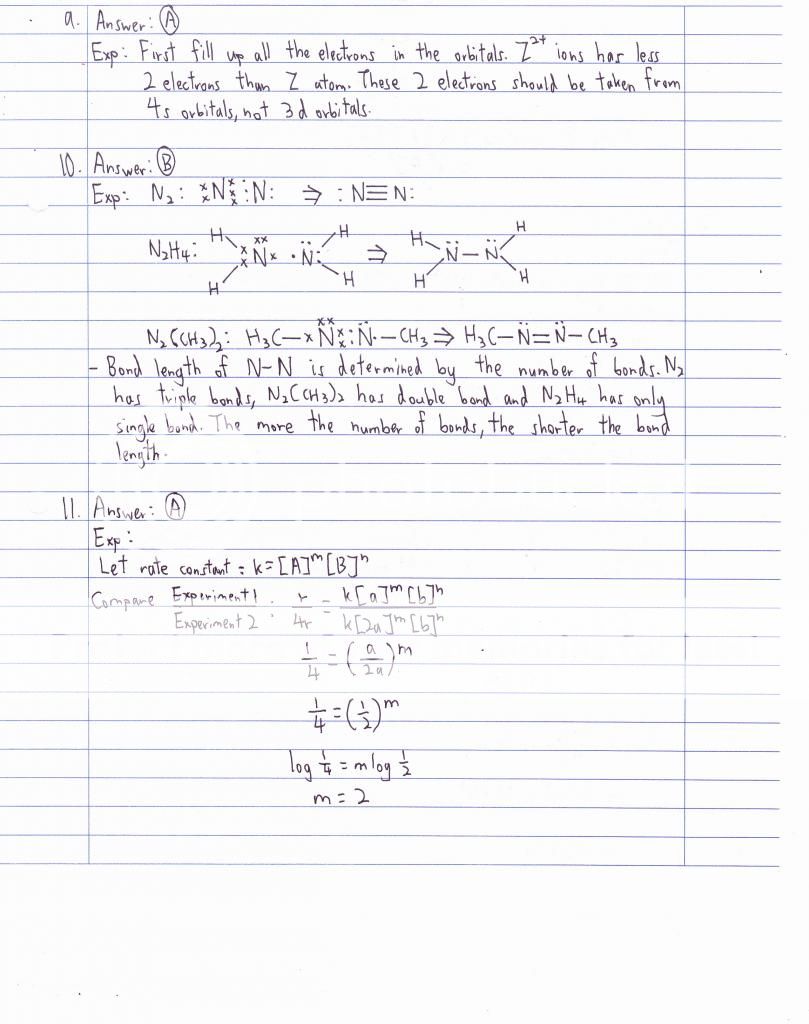 9. Answer: A
Exp: First fill up all the electrons in the orbitals. Z²⁺ ions has less
2 electrons than Z atom. These 2 electrons should be taken from
4s orbitals, not 3d orbitals.
10. Answer: B
Exp: N₂: ˣₓNˣₓˣ⋮N: ⇒ :N≡N:
N₂H₄: H H N · N H H ⇒ H H N̈ — N̈ H H
N₂(CH₃)₂: H₃C—ˣNˣₓ:N̈·—CH₃ ⇒ H₃C—N̈=N̈—CH₃
- Bond length of N-N is determined by the number of bonds. N₂
has triple bonds, N₂(CH₃)₂ has double bond and N₂H₄ has only
single bond. The more the number of bonds, the shorter the bond
length.
11. Answer: A
Exp:
Let rate constant = k=[A]ᵐ[B]ⁿ
Compare Experiment 1 / Experiment 2 : r/4r = k[a]ᵐ[b]ⁿ / k[2a]ᵐ[b]ⁿ
1/4 = (a/2a)ᵐ
1/4 = (1/2)ᵐ
log 1/4 = m log 1/2
m = 2